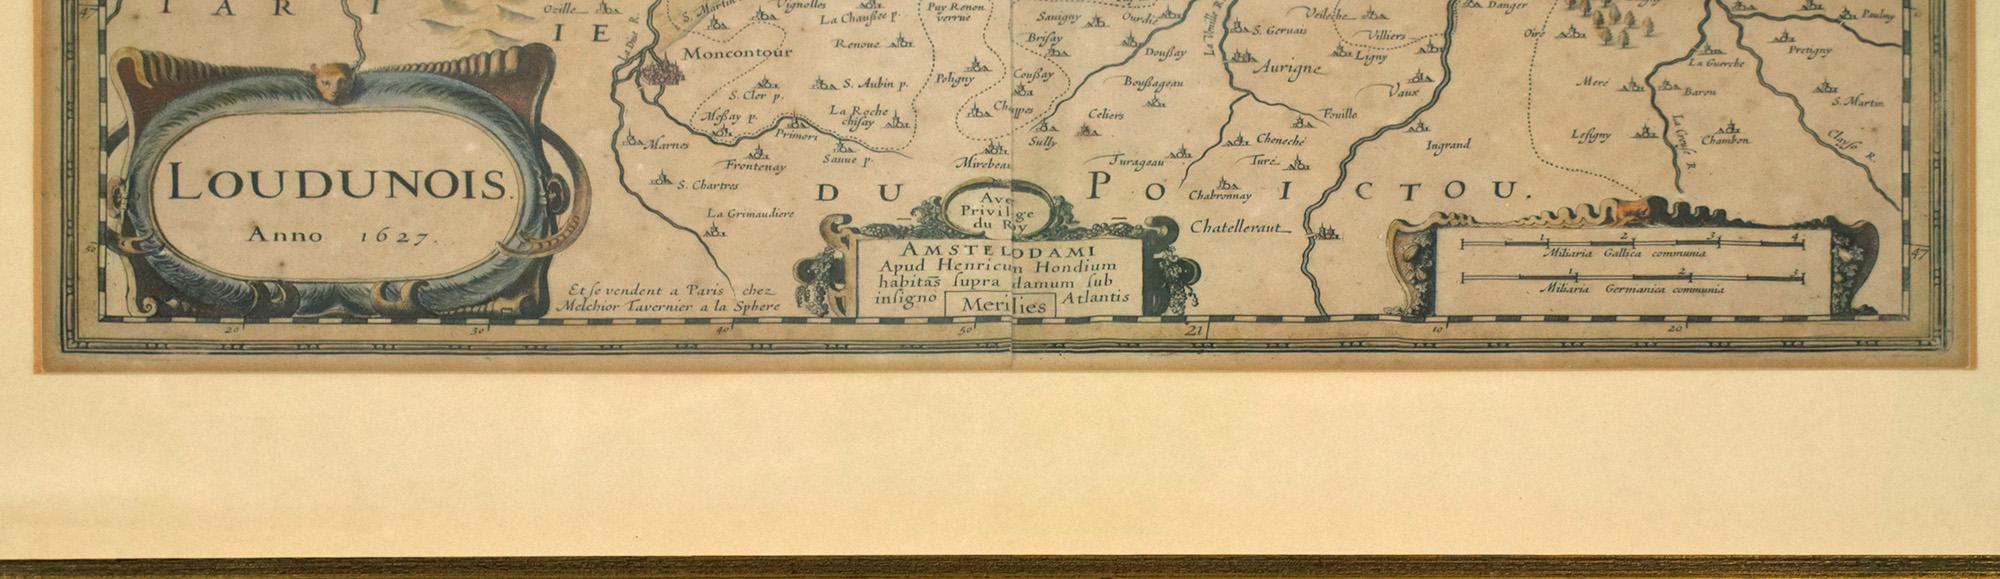 TARTIE
Ozille
S. Martin
Vignolles
La Chaußee p.
Puy Renon
verrue
Savigny
Ourdie
Brisay
Doußay
La Veuille R.
Veileche
Danger
S. Gervais
Villiers
Ligny
Oiré
Paulmy
Pretigny
La Guerche
La Dive R.
Moncontour
Renoue
Poligny
Coußay
Boußageau
Aurigne
Vaux
Meré
Baron
S. Martin
S. Cler p.
S. Aubin p.
Meßay p.
La Roche
chisay
Chappes
Celiers
Fouille
La Creuse R.
Primori
Marnes
Sully
Cheneché
Ingrand
Lesigny
Chambon
Clayse R.
Frontenay
Sauue p.
Mirebeau
Turageau
Turé
S. Chartres
Chabronnay
LOUDUNOIS.
Anno 1627.
DU POICTOU.
La Grimaudiere
Chatelleraut
Avec
Privilege
du Roy
AMSTELODAMI
Apud Henricum Hondium
habitās supra damum sub
insigno Atlantis
Merilies
Et se vendent a Paris chez
Melchior Tavernier a la Sphere
1 2 3 4
Miliaria Gallica communia
1 2 3
Miliaria Germanica communia
47
50
20 30 40 50 21 10 20